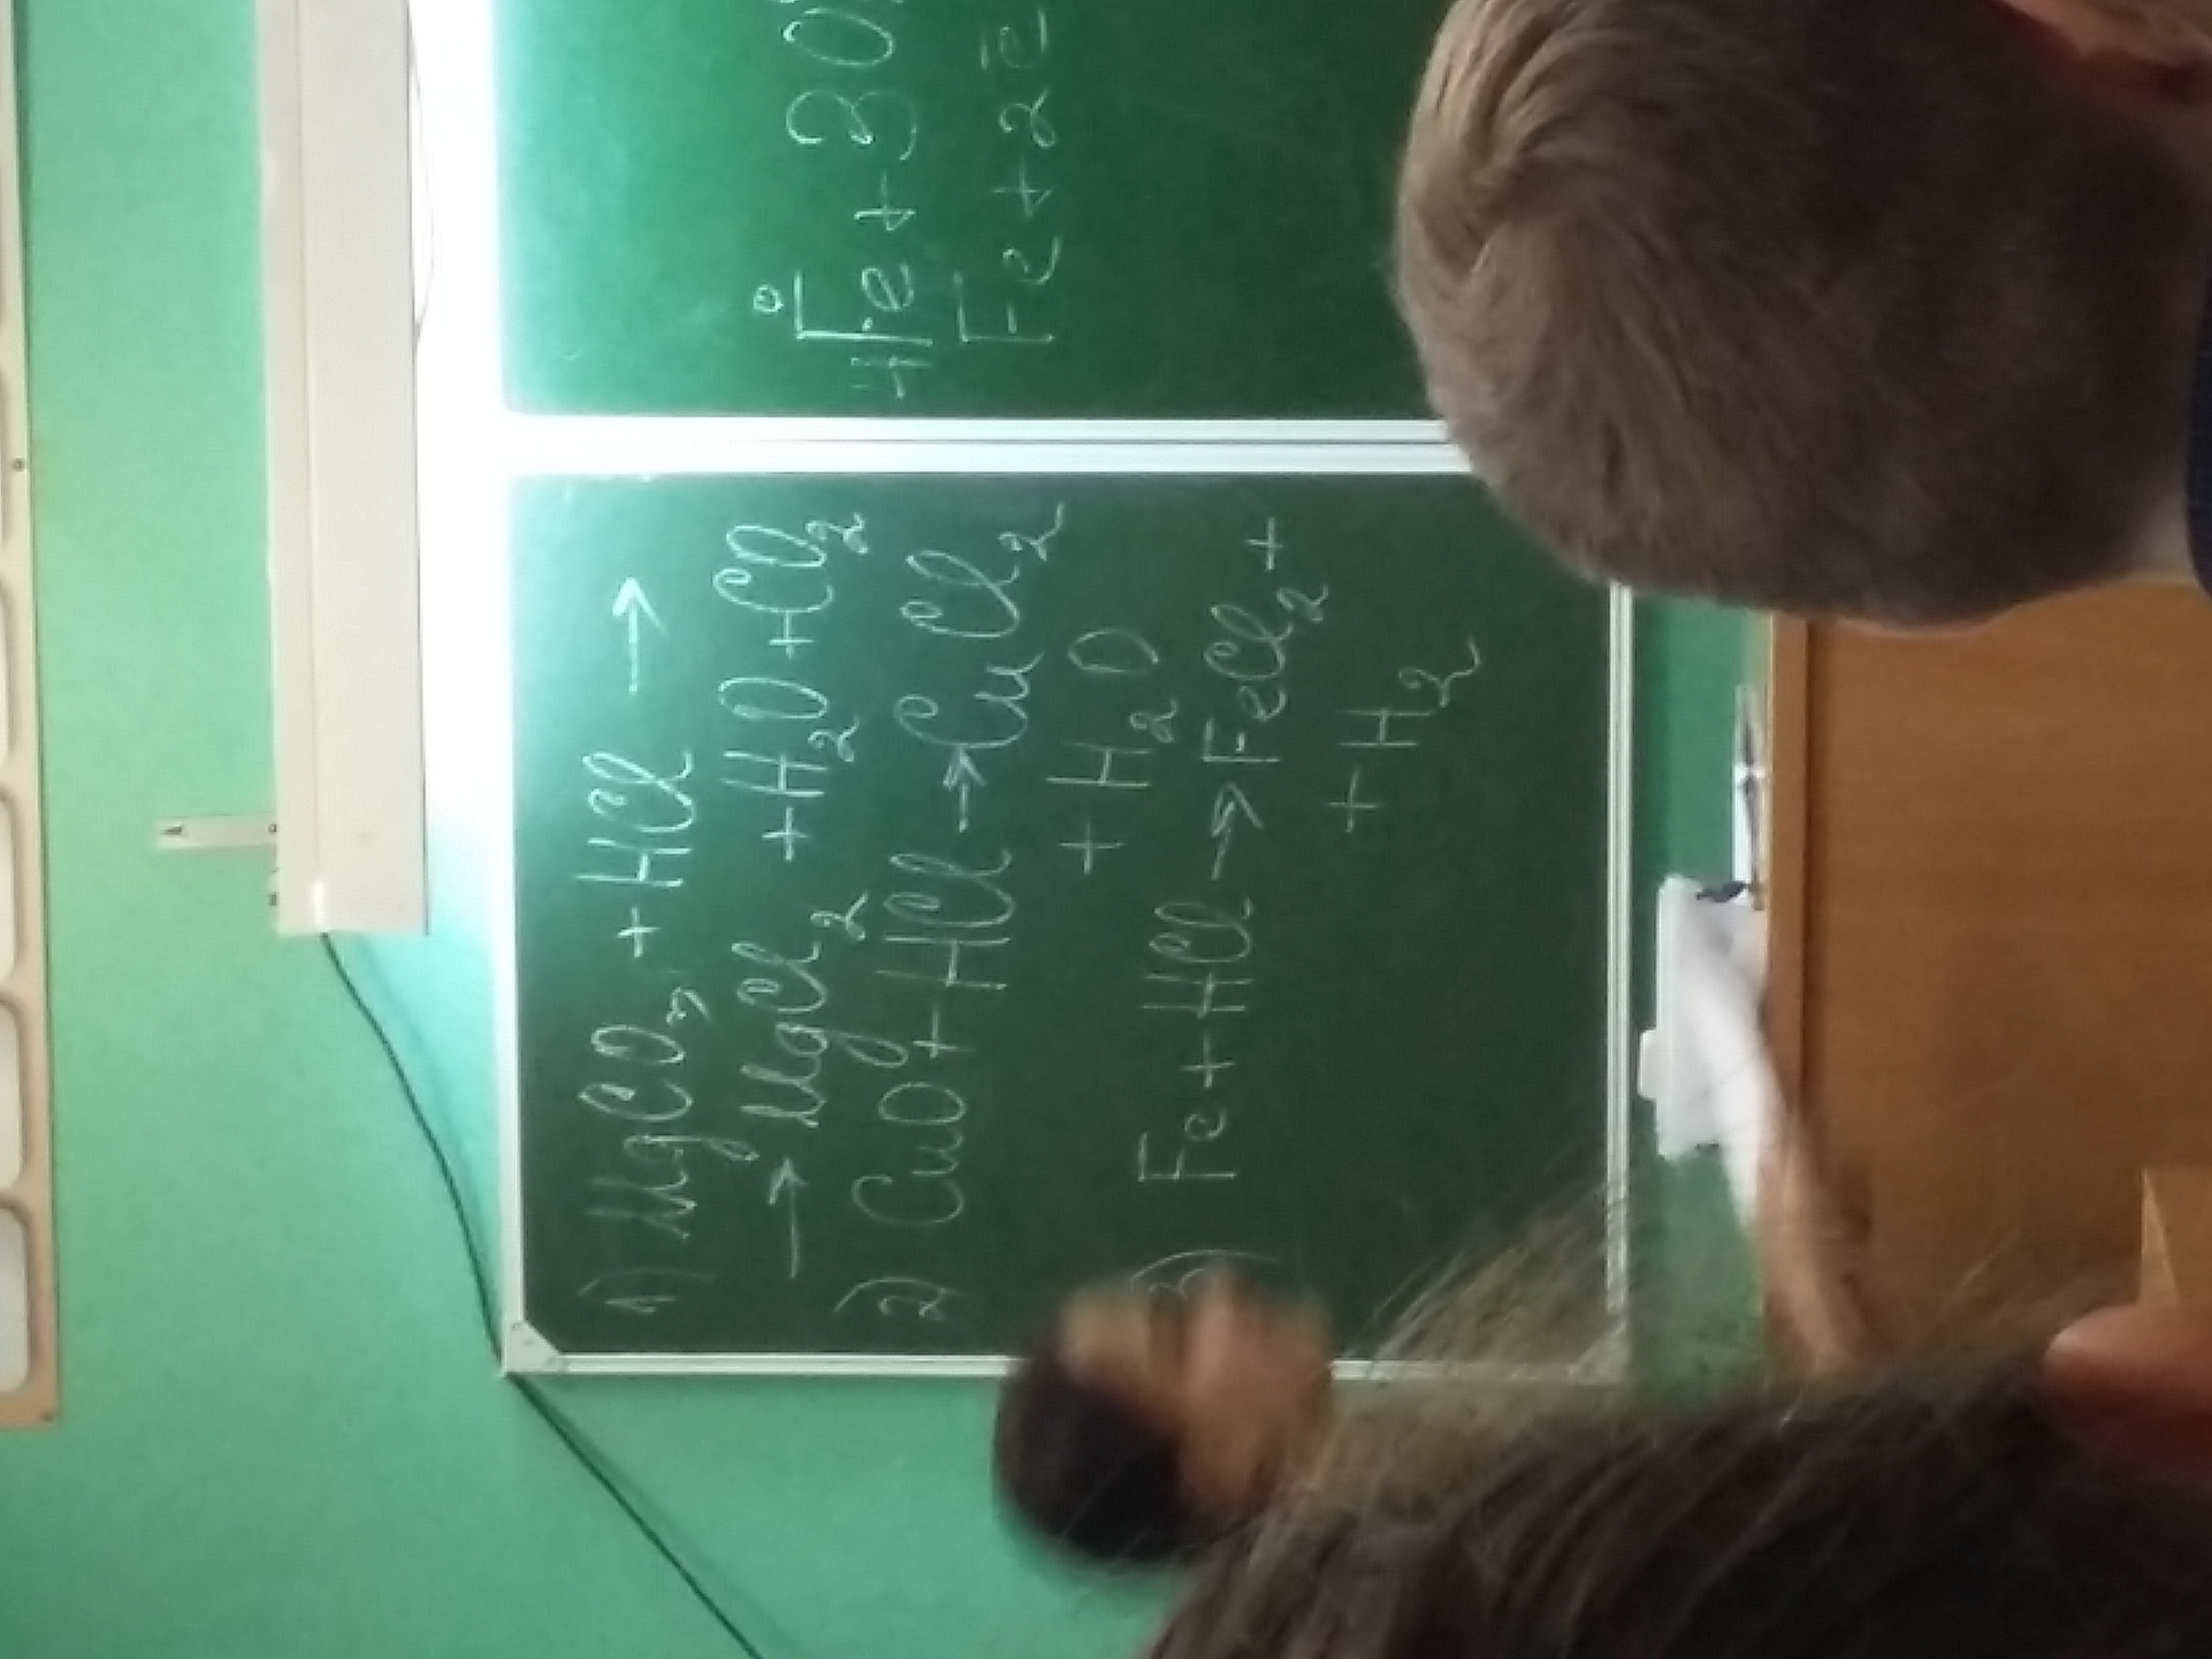 1) MgCO₃ + HCl →
→ MgCl₂ + H₂O + Cl₂
2) CuO + HCl → CuCl₂
+ H₂O
3) Fe + HCl → FeCl₂ +
+ H₂
0
Fe
4Fe + 3O
Fe + 2e̅